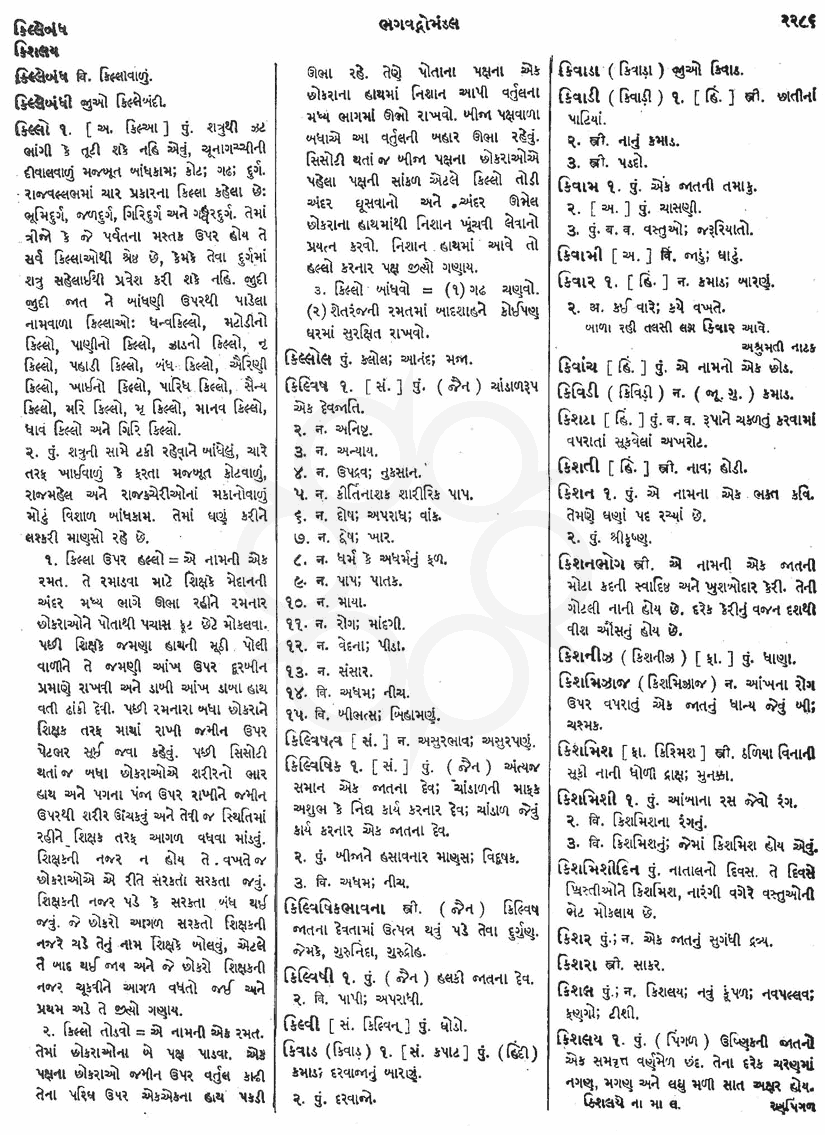 કિલ્લેબંધ
કિશલય
ભગવદ્ગોમંડલ
૨૨૮૬
કિલ્લેબંધ વિ. કિલ્લાવાળું.
કિલ્લેબંધી જુઓ કિલેબંદી.
કિલ્લો ૧. [ અ. કિલ્આ ] પું. શત્રુથી ઝટ
ભાંગી કે તૂટી શકે નહિ એવું, ચૂનાગચ્ચીની
દીવાલવાળું મજબૂત બાંધકામ; કોટ; ગઢ; દુર્ગ.
રાજવલ્લભમાં ચાર પ્રકારના કિલ્લા કહેલા છે:
ભૂમિદુર્ગ, જળદુર્ગ, ગિરિદુર્ગ અને ગહ્વરદુર્ગ. તેમાં
ત્રીજો કે જે પર્વતના મસ્તક ઉપર હોય તે
સર્વ કિલ્લાઓથી શ્રેષ્ઠ છે, કેમકે તેવા દુર્ગમાં
શત્રુ સહેલાઈથી પ્રવેશ કરી શકે નહિ. જુદી
જુદી જાત ને બાંધણી ઉપરથી પાડેલા
નામવાળા કિલ્લાઓ: ધન્વકિલ્લો, મટોડીનો
કિલ્લો, પાણીનો કિલ્લો, ઝાડનો કિલ્લો, નૃ
કિલ્લો, પહાડી કિલ્લો, બંધ કિલ્લો, ઐરિણી
કિલ્લો, ખાઈનો કિલ્લો, પારિધ કિલ્લો, સૈન્ય
કિલ્લો, મરિ કિલ્લો, મૃ કિલ્લો, માનવ કિલ્લો,
ધાવં કિલ્લો અને ગિરિ કિલ્લો.
૨. પું. શત્રુની સામે ટકી રહેવાને બાંધેલું, ચારે
તરફ ખાઈવાળું કે ફરતા મજબૂત કોટવાળું,
રાજમહેલ અને રાજકચેરીઓનાં મકાનોવાળું
મોટું વિશાળ બાંધકામ. તેમાં ઘણું કરીને
લશ્કરી માણસો રહે છે.
૧. કિલ્લા ઉપર હલ્લો = એ નામની એક
રમત. તે રમાડવા માટે શિક્ષકે મેદાનની
અંદર મધ્ય ભાગે ઊભા રહીને રમનાર
છોકરાઓને પોતાથી પચાસ ફૂટ છેટે મોકલવા.
પછી શિક્ષકે જમણા હાથની મૂઠી પોલી
વાળીને તે જમણી આંખ ઉપર દૂરબીન
પ્રમાણે રાખવી અને ડાબી આંખ ડાબા હાથ
વતી ઢાંકી દેવી. પછી રમનારા બધા છોકરાને
શિક્ષક તરફ માથાં રાખી જમીન ઉપર
પેટભર સૂઈ જવા કહેવું. પછી સિસોટી
થતાં જ બધા છોકરાઓએ શરીરનો ભાર
હાથ અને પગના પંજા ઉપર રાખીને જમીન
ઉપરથી શરીર ઊંચકવું અને તેવી જ સ્થિતિમાં
રહીને શિક્ષક તરફ આગળ વધવા માંડવું.
શિક્ષકની નજર ન હોય તે વખતે જ
છોકરાઓએ એ રીતે સરકતા સરકતા જવું.
શિક્ષકની નજર પડે કે સરકતા બંધ થઈ
જવું. જે છોકરો આગળ સરકતો શિક્ષકની
નજરે ચડે તેનું નામ શિક્ષકે બોલવું, એટલે
તે બાદ થઈ જાય અને જે છોકરો શિક્ષકની
નજર ચૂકવીને આગળ વધતો જઈ અને
પ્રથમ અડે તે જીત્યો ગણાય.
૨. કિલ્લો તોડવો = એ નામની એક રમત.
તેમાં છોકરાઓના બે પક્ષ પાડવા. એક
પક્ષના છોકરાઓ જમીન ઉપર વર્તુલ કાઢી
તેના પરિઘ ઉપર એકએકના હાથ પકડી
ઊભા રહે. તેણે પોતાના પક્ષના એક
છોકરાના હાથમાં નિશાન આપી વર્તુલના
મધ્ય ભાગમાં ઊભો રાખવો. બીજા પક્ષવાળા
બધાએ આ વર્તુલની બહાર ઊભા રહેવું.
સિસોટી થતાં જ બીજા પક્ષના છોકરાઓએ
પહેલા પક્ષની સાંકળ એટલે કિલ્લો તોડી
અંદર ઘૂસવાનો અને અંદર ઊભેલ
છોકરાના હાથમાંથી નિશાન ખૂંચવી લેવાનો
પ્રયત્ન કરવો. નિશાન હાથમાં આવે તો
હલ્લો કરનાર પક્ષ જીત્યો ગણાય.
૩. કિલ્લો બાંધવો = (૧) ગઢ ચણવો.
(૨) શેતરંજની રમતમાં બાદશાહને કોઈપણ
ઘરમાં સુરક્ષિત રાખવો.
કિલ્લોલ પું. કલોલ; આનંદ; મજા.
કિલ્વિષ ૧. [ સં. ] પું. ( જૈન ) ચાંડાળરૂપ
એક દેવજાતિ.
૨. ન. અનિષ્ટ.
૩. ન. અન્યાય.
૪. ન. ઉપદ્રવ; નુકસાન.
૫. ન. કીર્તિનાશક શારીરિક પાપ.
૬. ન. દોષ; અપરાધ; વાંક.
૭. ન. દ્વેષ; ખાર.
૮. ન. ધર્મ કે અધર્મનું ફળ.
૯. ન. પાપ; પાતક.
૧૦. ન. માયા.
૧૧. ન. રોગ; માંદગી.
૧૨. ન. વેદના; પીડા.
૧૩. ન. સંસાર.
૧૪. વિ. અધમ; નીચ.
૧૫. વિ. બીભત્સ; બિહામણું.
કિલ્વિષત્વ [ સં. ] ન. અસુરભાવ; અસુરપણું.
કિલ્વિષિક ૧. [ સં. ] પું. ( જૈન ) અંત્યજ
સમાન એક જાતના દેવ; ચાંડાળની માફક
અશુભ કે નિંદ્ય કાર્ય કરનાર દેવ; ચાંડાળ જેવું
કાર્ય કરનાર એક જાતના દેવ.
૨. પું. બીજાને હસાવનાર માણસ; વિદૂષક.
૩. વિ. અધમ; નીચ.
કિલ્વિષિકભાવના સ્ત્રી. ( જૈન ) કિલ્વિષ
જાતના દેવતામાં ઉત્પન્ન થવું પડે તેવા દુર્ગુણ.
જેમકે, ગુરુનિંદા, ગુરુદ્રોહ.
કિલ્વિષી ૧. પું. ( જૈન ) હલકી જાતના દેવ.
૨. વિ. પાપી; અપરાધી.
કિલ્વી [ સં. કિલ્વિન્ ] પું. ઘોડો.
કિવાડ (કિવાડ઼) ૧. [ સં. કપાટ ] પું. (હિંદી)
કમાડ; દરવાજાનું બારણું.
૨. પું. દરવાજો.
કિવાડા ( કિવાડ઼ા ) જુઓ કિવાડ.
કિવાડી ( કિવાડ઼ી ) ૧. [ હિં. ] સ્ત્રી. છાતીનાં
પાટિયાં.
૨. સ્ત્રી. નાનું કમાડ.
૩. સ્ત્રી. પડદો.
કિવામ ૧. પું. એક જાતની તમાકુ.
૨. [ અ. ] પું. ચાસણી.
૩. પું. બ. વ. વસ્તુઓ; જરૂરિયાતો.
કિવામી [ અ. ] વિ. જાડું; ઘાટું.
કિવાર ૧. [ હિં. ] ન. કમાડ; બારણું.
૨. અ. કઈ વારે; કયે વખતે.
બાળા રહી તલસી લગ્ન કિવાર આવે.
અશ્રુમતી નાટક
કિવાંચ [ હિં. ] પું. એ નામનો એક છોડ.
કિવિડી ( કિવિડ઼ી ) ન. ( જૂ. ગુ. ) કમાડ.
કિશટા [ હિં. ] પું. બ. વ. રૂપાને ચકળતું કરવામાં
વપરાતાં સૂકવેલાં અખરોટ.
કિશતી [ હિં. ] સ્ત્રી. નાવ; હોડી.
કિશન ૧. પું. એ નામના એક ભક્ત કવિ.
તેમણે ઘણાં પદ રચ્યાં છે.
૨. પું. શ્રીકૃષ્ણ.
કિશનભોગ સ્ત્રી. એ નામની એક જાતની
મોટા કદની સ્વાદિષ્ઠ અને ખુશબોદાર કેરી. તેની
ગોટલી નાની હોય છે. દરેક કેરીનું વજન દશથી
વીશ ઔંસનું હોય છે.
કિશનીઝ ( કિશનીઝ઼ ) [ ફા. ] પું. ધાણા.
કિશમિઝાજ ( કિશમિઝ઼ાજ ) ન. આંખના રોગ
ઉપર વપરાતું એક જાતનું ધાન્ય જેવું બી;
ચશ્મક.
કિશમિશ [ ફા. કિસ્મિશ ] સ્ત્રી. ઠળિયા વિનાની
સૂકી નાની ધોળી દ્રાક્ષ; મુનક્કા.
કિશમિશી ૧. પું. આંબાના રસ જેવો રંગ.
૨. વિ. કિશમિશના રંગનું.
૩. વિ. કિશમિશનું; જેમાં કિશમિશ હોય એવું.
કિશમિશીદિન પું. નાતાલનો દિવસ. તે દિવસે
ખ્રિસ્તીઓને કિશમિશ, નારંગી વગેરે વસ્તુઓની
ભેટ મોકલાય છે.
કિશર પું.; ન. એક જાતનું સુગંધી દ્રવ્ય.
કિશરા સ્ત્રી. સાકર.
કિશલ પું.; ન. કિશલય; નવું કૂંપળ; નવપલ્લવ;
ફણગો; ટીશી.
કિશલય ૧. પું. ( પિંગળ ) ઉષ્ણિકની જાતનો
એક સમવૃત્ત વર્ણમેળ છંદ. તેના દરેક ચરણમાં
નગણ, મગણ અને લઘુ મળી સાત અક્ષર હોય.
કિશલયે ના મા લ.
રણપિંગળ